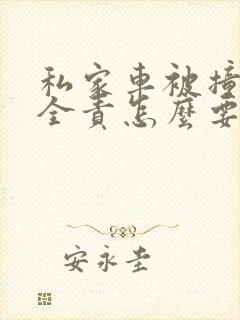 私家車被撞
全責怎麼要
安永圭